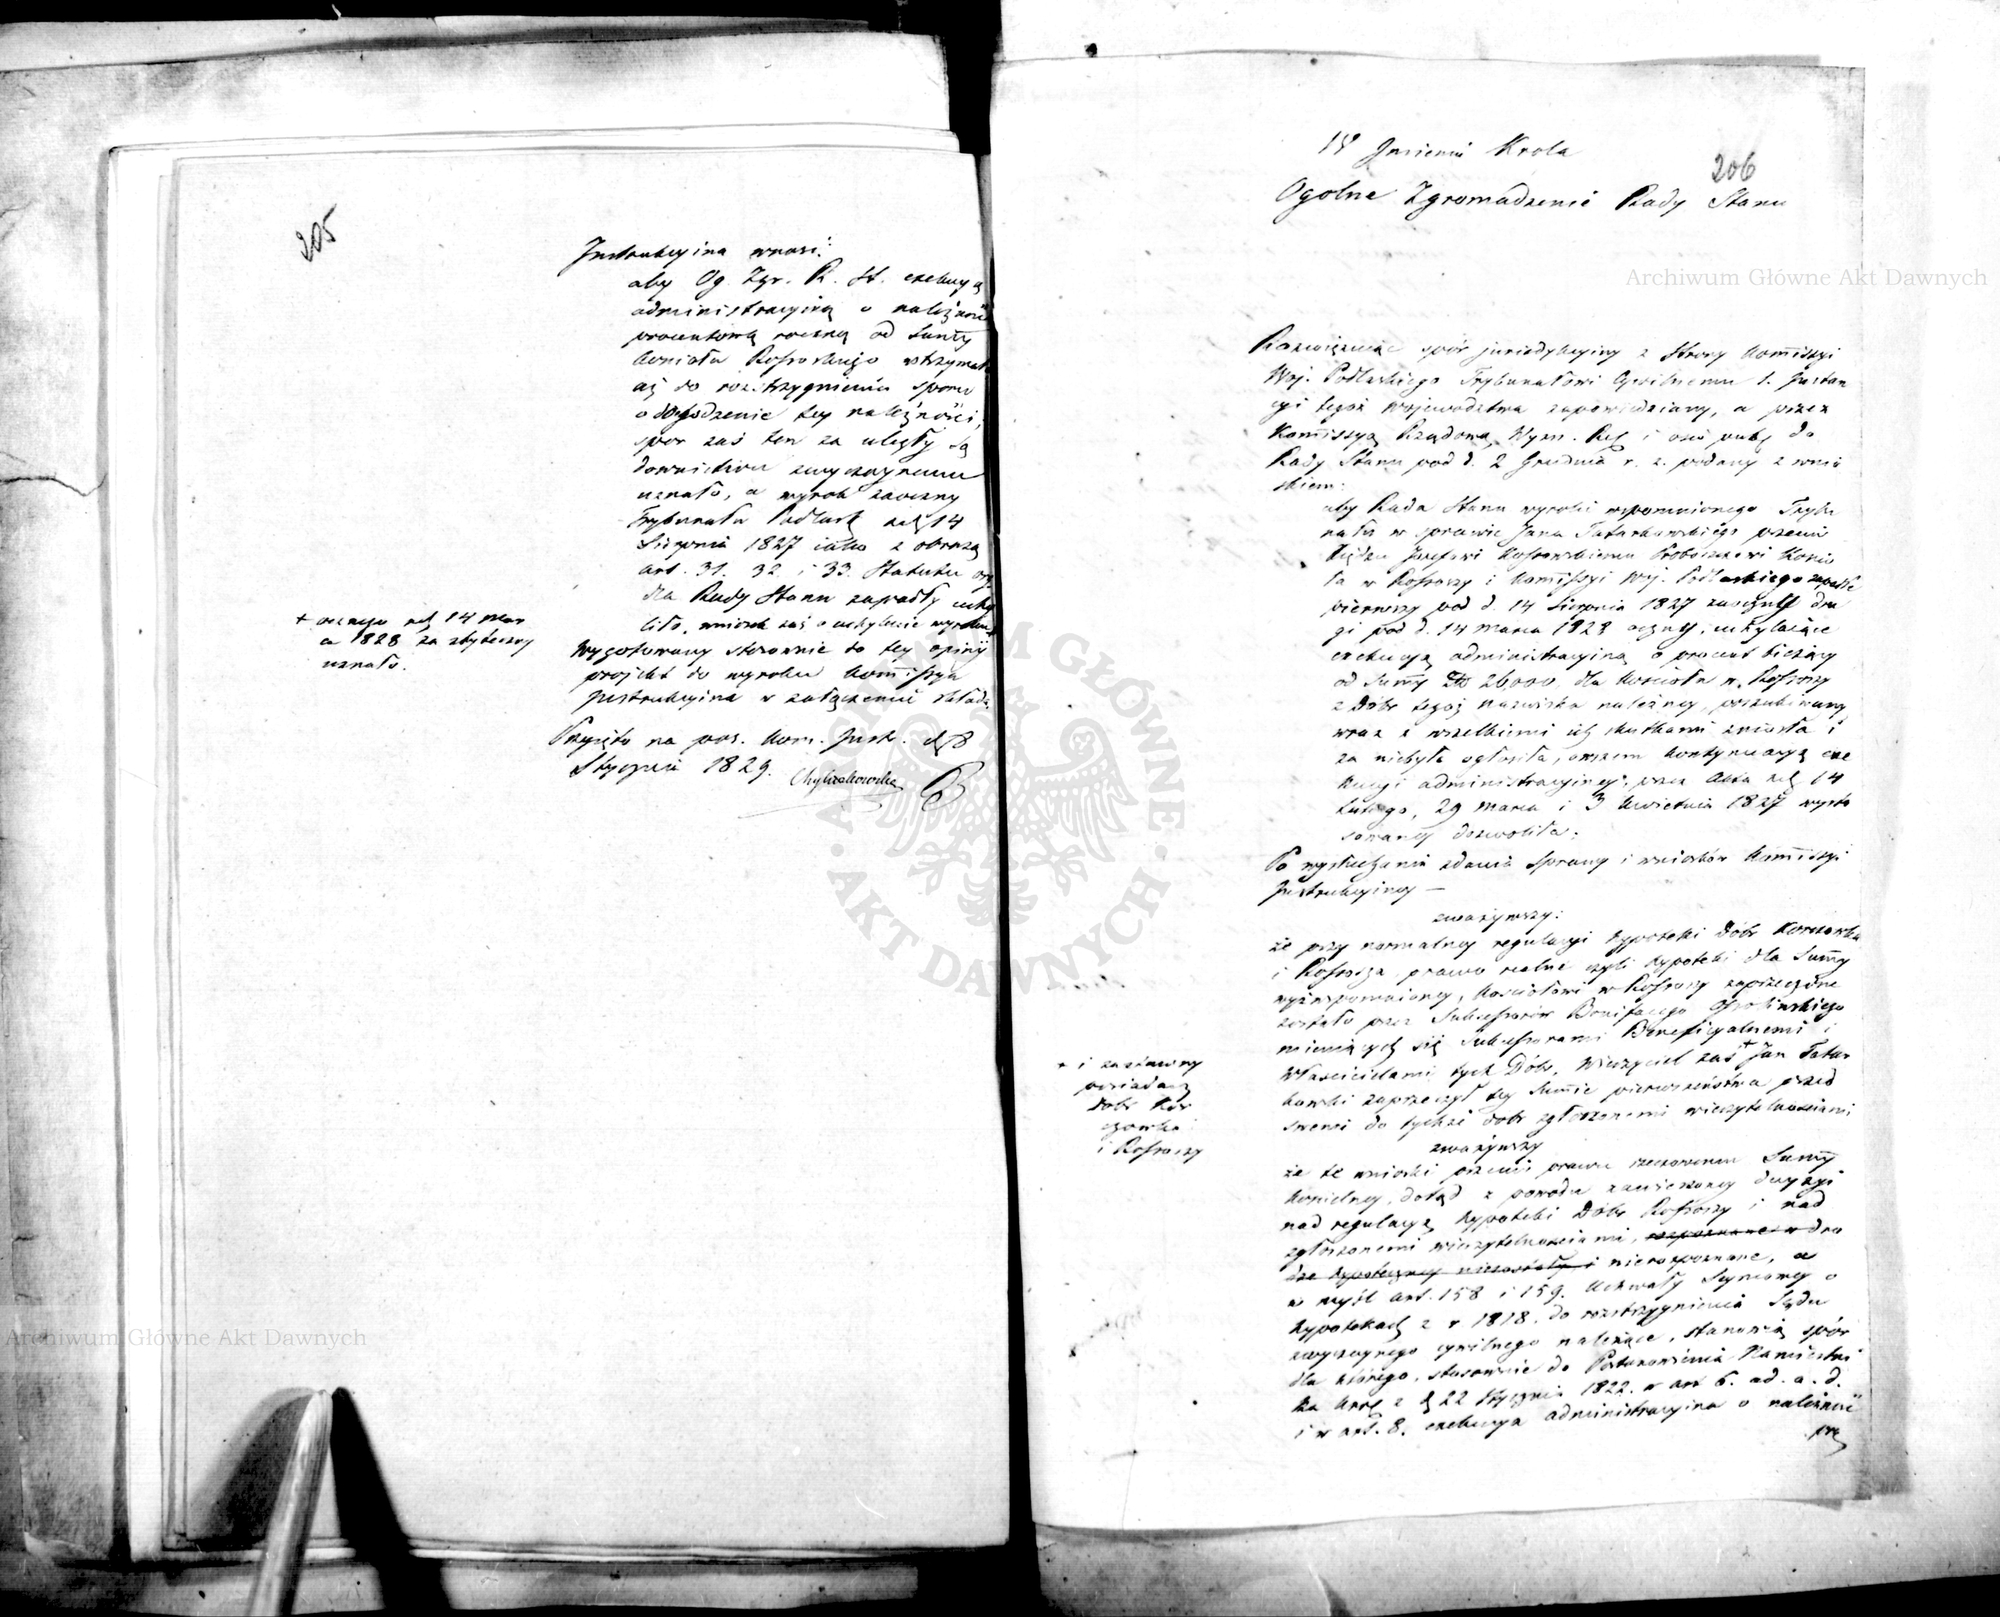 205
Instrukcyina wnosi:
aby Og. Zgr. R. St. exekucyą
administracyiną o należność
procentową roczną od Summy
kościoła Rossoskiego wstrzymał
aż do rozstrzygnienia sporu
o dochodzenie tey należności,
spór zaś ten za uległy Są
downictwu zwyczaynemu
uznało, a wyrok zaoczny
Trybunału Podlask. z d. 14
Sierpnia 1827 iako z obrazą
art. 31. 32. i 33. Statutu org.
dla Rady Stanu zapadły uchy
liło, wniosek zaś o uchylenie wyroku
+ ocznego z d. 14 Mar
ca 1828 za zbyteczny
uznało.
Wygotowany stosownie do tey opinij
projekt do wyroku Kommissya
Instrukcyina w załączeniu składa.
Przyięto na pos. Kom. Instr. d. 8
Stycznia 1829.
206
W Imieniu Krola
Ogolne Zgromadzenie Rady Stanu
Rozwiązuiąc spór jurisdykcyiny z strony Kommissyi
Woj. Podlaskiego Trybunałowi Cywilnemu 1. Instan
cyi tegoż Województwa zapowiedziany, a przez
Kommissyą Rządową Wyzn. Rel. i ośw. publ. do
Rady Stanu pod d. 2 Grudnia r. z. podany z wnio
skiem:
aby Rada Stanu wyroki wspomnionego Trybu
nału w sprawie Jana Tatarkowskiego przeciw
Xiędzu Józefowi Proboszczowi Kościo
ła w Rossoszy i Kommissyi Woj. Podlaskiego zapadłe
pierwszy pod d. 14 Sierpnia 1827 zaoczny dru
gi pod d. 14 Marca 1828 oczny, uchylaiące
exekucyą administracyiną o procent bieżący
od Summy Złp 26,000 dla Kościoła w Rossoszy
z Dóbr tegoż nazwiska należney, poszukiwany
wraz z wszelkiemi ich skutkami zniosła i
za niebyłe ogłosiła, owszem kontynuacyą exe
kucyi administracyiney, przez Akta z d. 14
Lutego, 29 Marca i 3 Kwietnia 1827 wysto
sowaney dozwoliła;
Po wysłuchaniu zdania sprawy i wniosków Kommissyi
Instrukcyiney —
zważywszy:
że przy normalney regulacyi hypoteki Dóbr Korczówka
i Rossosza, prawo realne czyli hypoteki dla Summy
wyżwspomnioney, Kościołowi w Rossoszy zaprzeczone
zostało przez Sukcessorów Bonifacego Ossolińskiego
mieniących się Sukcessorami Beneficyalnemi i
Właścicielami tych Dóbr, Wierzyciel zaś + Jan Tatar
kowski zaprzeczył tey Summie pierwszeństwa przed
swemi do tychże dóbr zgłoszonemi wierzytelnościami
+ i zastawny
posiadacz
Dobr Kor
czowka
i Rossoszy
zważywszy
że te wnioski przeciw prawu rzeczowemu Summy
kościelney, dotąd z powodu zawieszoney decyzyi
nad regulacyą hypoteki Dóbr Rossoszy i nad
zgłoszonemi wierzytelnościami, rozpoznane w dro
dze hypoteczney niezostały i nierozpoznane, a
w myśl art. 158 i 159. Uchwały Seymowey o
hypotekach z r 1818. do rozstrzygnienia Sądu
zwyczaynego cywilnego należące, stanowią spór
dla którego, stosownie do Postanowienia Namiestni
ka Król. z d. 22 Stycznia 1822. w art 6. ad. a. d.
i w art. 8. exekucya administracyina o należność